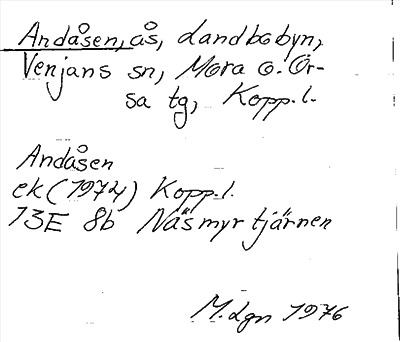 Andåsen, ås, Landbobyn,
Venjans sn, Mora o. Or-
sa tg, Kopp. l.
Andåsen
ek (1974) Kopp. l.
13E 8b Näsmyrtjärnen
M. Lgn 1976